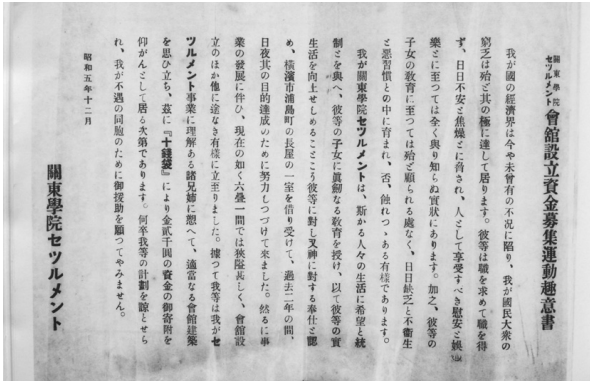 關東學院セツルメント 會舘設立資金募集運動趣意書
我が國の經濟界は今や未曾有の不況に陷り、我が國民大衆の
窮乏は殆ど其の極に達して居ります。彼等は職を求めて職を得
ず、日日不安と焦燥とに脅され、人として享受すべき慰安と娯
樂とに至つては全く與り知らぬ實狀にあります。加之、彼等の
子女の敎育に至つては殆ど顧られる處なく、日日缺乏と不衞生
と惡習慣との中に育まれ、否、蝕れつゝある有樣であります。
我が關東學院セツルメントは、斯かる人々の生活に希望と統
制とを與へ、彼等の子女に眞劒なる敎育を授け、以て彼等の實
生活を向上せしめることこそ彼等に對し又神に對する奉仕と認
め、橫濱市浦島町の長屋の一室を借り受けて、過去二年の間、
日夜其の目的達成のために努力しつづけて來ました。然るに事
業の發展に伴ひ、現在の如く六疊一間では狹隘甚しく、會舘設
立のほか他に途なき有樣に立至りました。據つて我等は我がセ
ツルメント事業に理解ある諸兄姉に愬へて、適當なる會舘建築
を思ひ立ち、茲に『十錢袋』により金貳千圓の資金の御寄附を
仰がんとして居る次第であります。何卒我等の計劃を諒とせら
れ、我が不遇の同胞のために御援助を願つてやみません。
昭和五年十二月
關東學院セツルメント